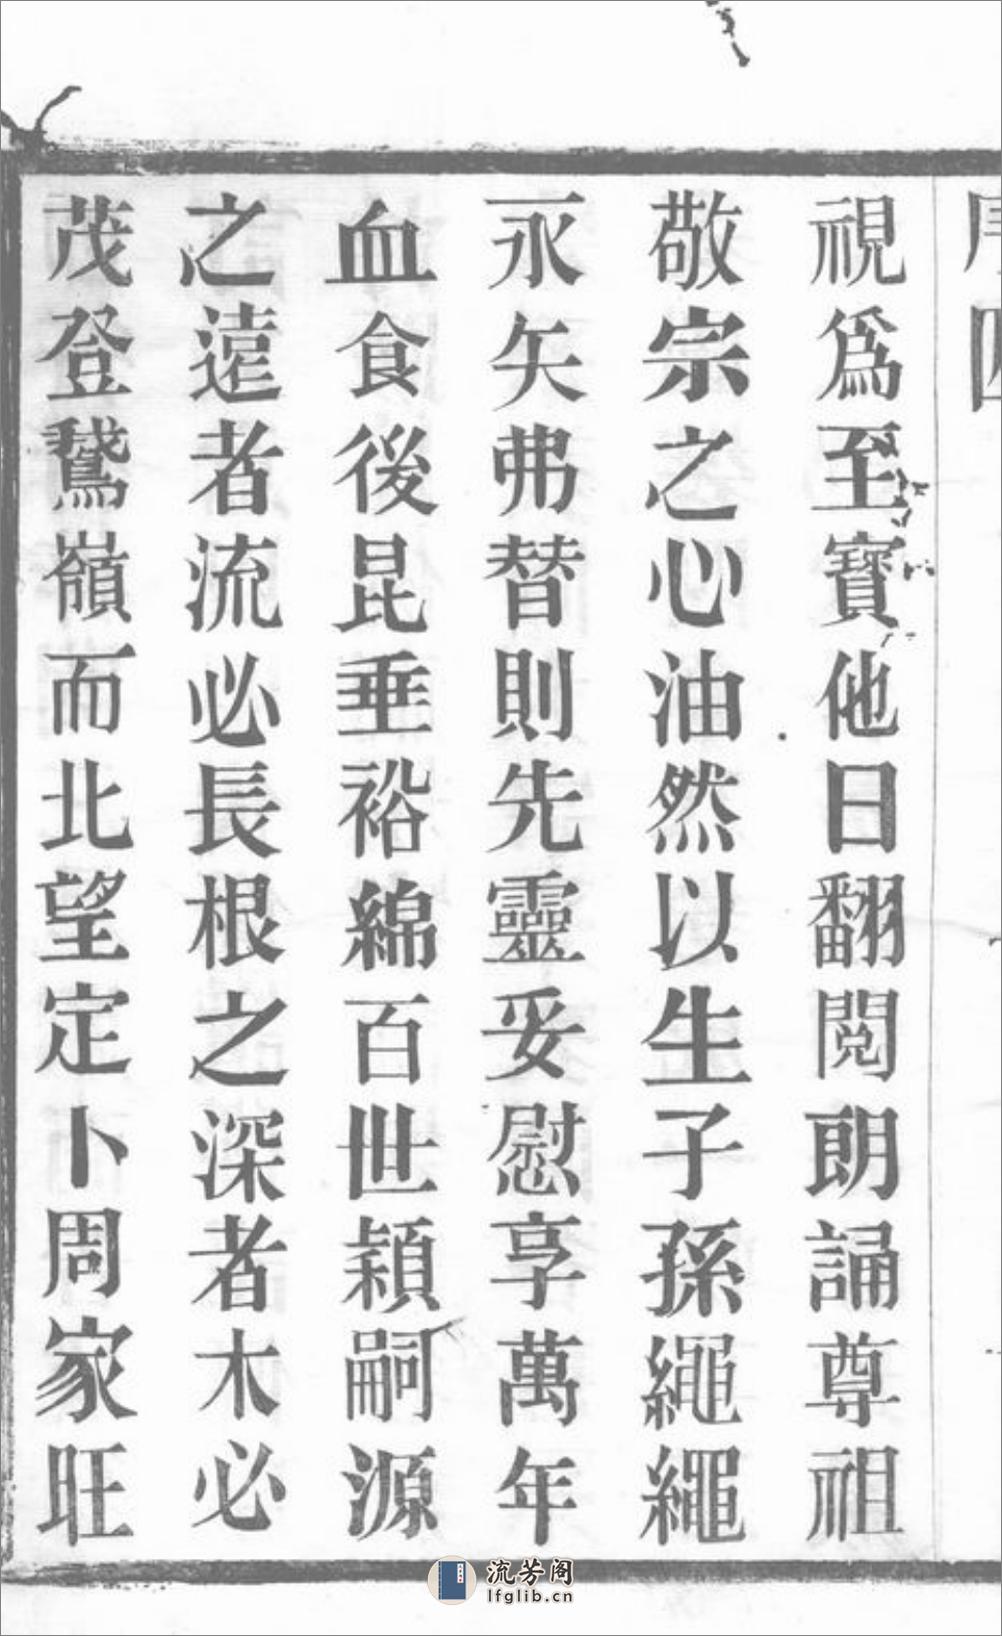 視爲至寶他日翻閱朗誦尊祖
敬宗之心油然以生子孫繩繩
永矢弗替則先靈妥慰享萬年
血食後昆垂裕綿百世穎嗣源
之遠者流必長根之深者木必
茂登鵞嶺而北望定卜周家旺
流芳阁
lfglib.cn